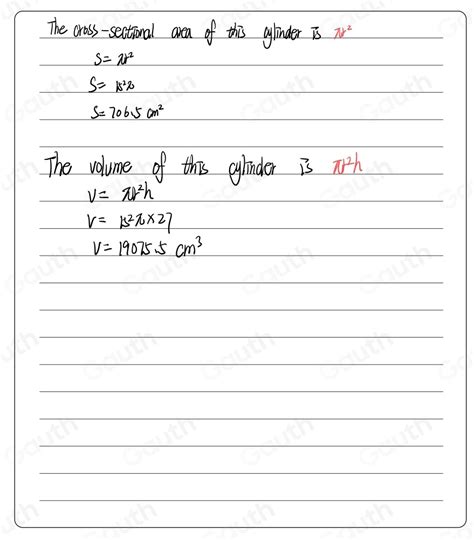 The cross-sectional area of this cylinder is πr²
S = πr²
S = 15²π
S = 706.5 cm²
The volume of this cylinder is πr²h
V = πr²h
V = 15²π×27
V = 19075.5 cm³
Gauth